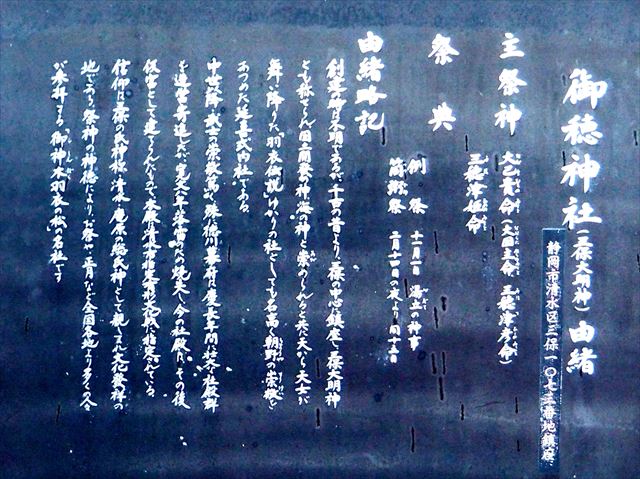 御穂神社(三保大明神)由緒
静岡市清水区三保一〇七三番地鎮座
主祭神 大己貴命(大国主命、三穂津彦命)
三穂津姫命
祭典 例祭 十一月一日
筒粥祭 二月十四日の夜より同十五日
由緒略記
創建時は不明であるが、千古の昔より三保の中心に鎮座し三保大明神
とも称せられ国土開発の神 海の神と崇められると共に天から天女が
舞い降りた羽衣伝説ゆかりの社としても名高く朝野の崇敬を
あつめた延喜式内社である。
中世以降武士の崇敬篤く殊に徳川幕府は慶長年間に壮大な社殿群
を造営寄進したが寛文八年落雷のため焼失し今の社殿はその後
仮宮として建てられたもので本殿は清水市指定有形文化財に指定されている。
信仰は三保の氏神 清水 庵原の総氏神として親しまれ文化発祥の
地であり祭神の神徳により、お祭や正月など全国各地より多くの人々
が参拝する、御神木羽衣の松の名社です